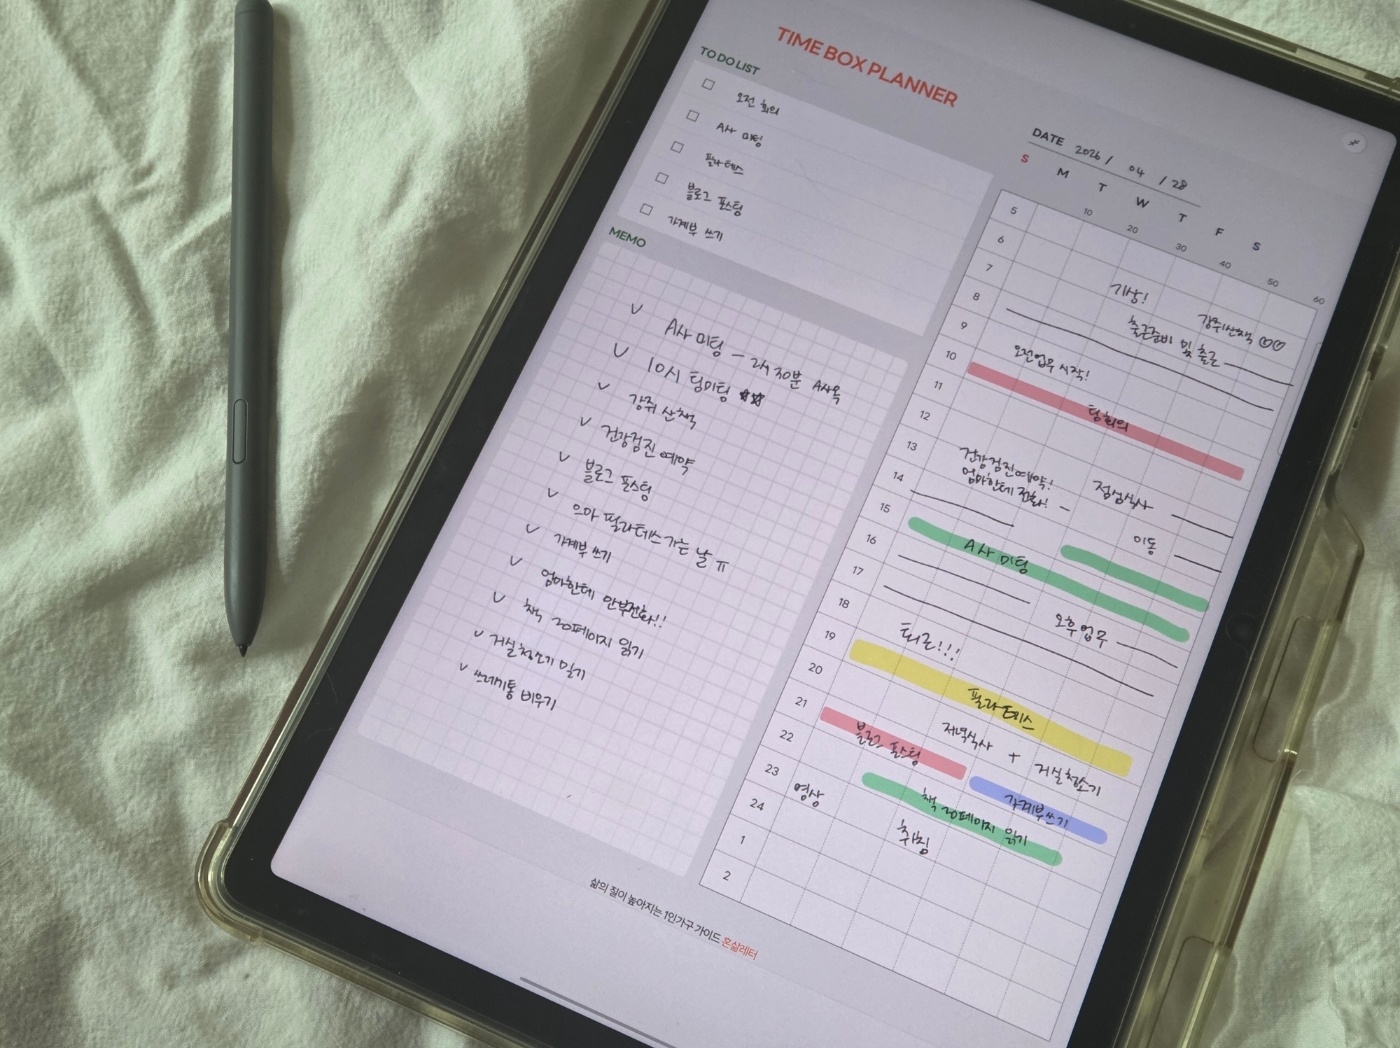 TIME BOX PLANNER
TO DO LIST
오전 회의
A사 미팅
필라테스
블로그 포스팅
가계부 쓰기
MEMO
A사 미팅 - 2시 30분 A사옥
10시 팀미팅 ☆☆
강쥐 산책
건강검진 예약
블로그 포스팅
으아 필라테스 가는 날 ㅠ
가계부 쓰기
엄마한테 안부전화!!
책 20페이지 읽기
거실 청소기 밀기
쓰레기통 비우기
DATE 2026 / 04 / 28
S M T W T F S
10 20 30 40 50 60
5
6
7 기상! 강쥐산책 ♡♡
8 출근준비 및 출근
9 오전업무 시작!
10 팀회의
11
12 건강검진예약! 점심식사
13 엄마한테 전화! 이동
14
15 A사 미팅
16 오후업무
17
18 퇴근!!!
19 필라테스
20 저녁식사 + 거실청소기
21 블로그 포스팅 가계부쓰기
22 책 20페이지 읽기
23 영상 취침
24
1
2
삶의 질이 높아지는 1인가구 가이드 혼삶레터